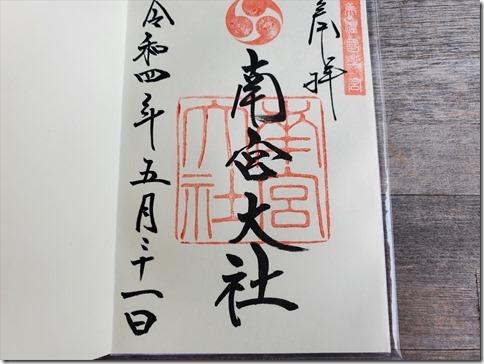 奉拝
南宮大社
南宮
大社
令和四年五月三十一日